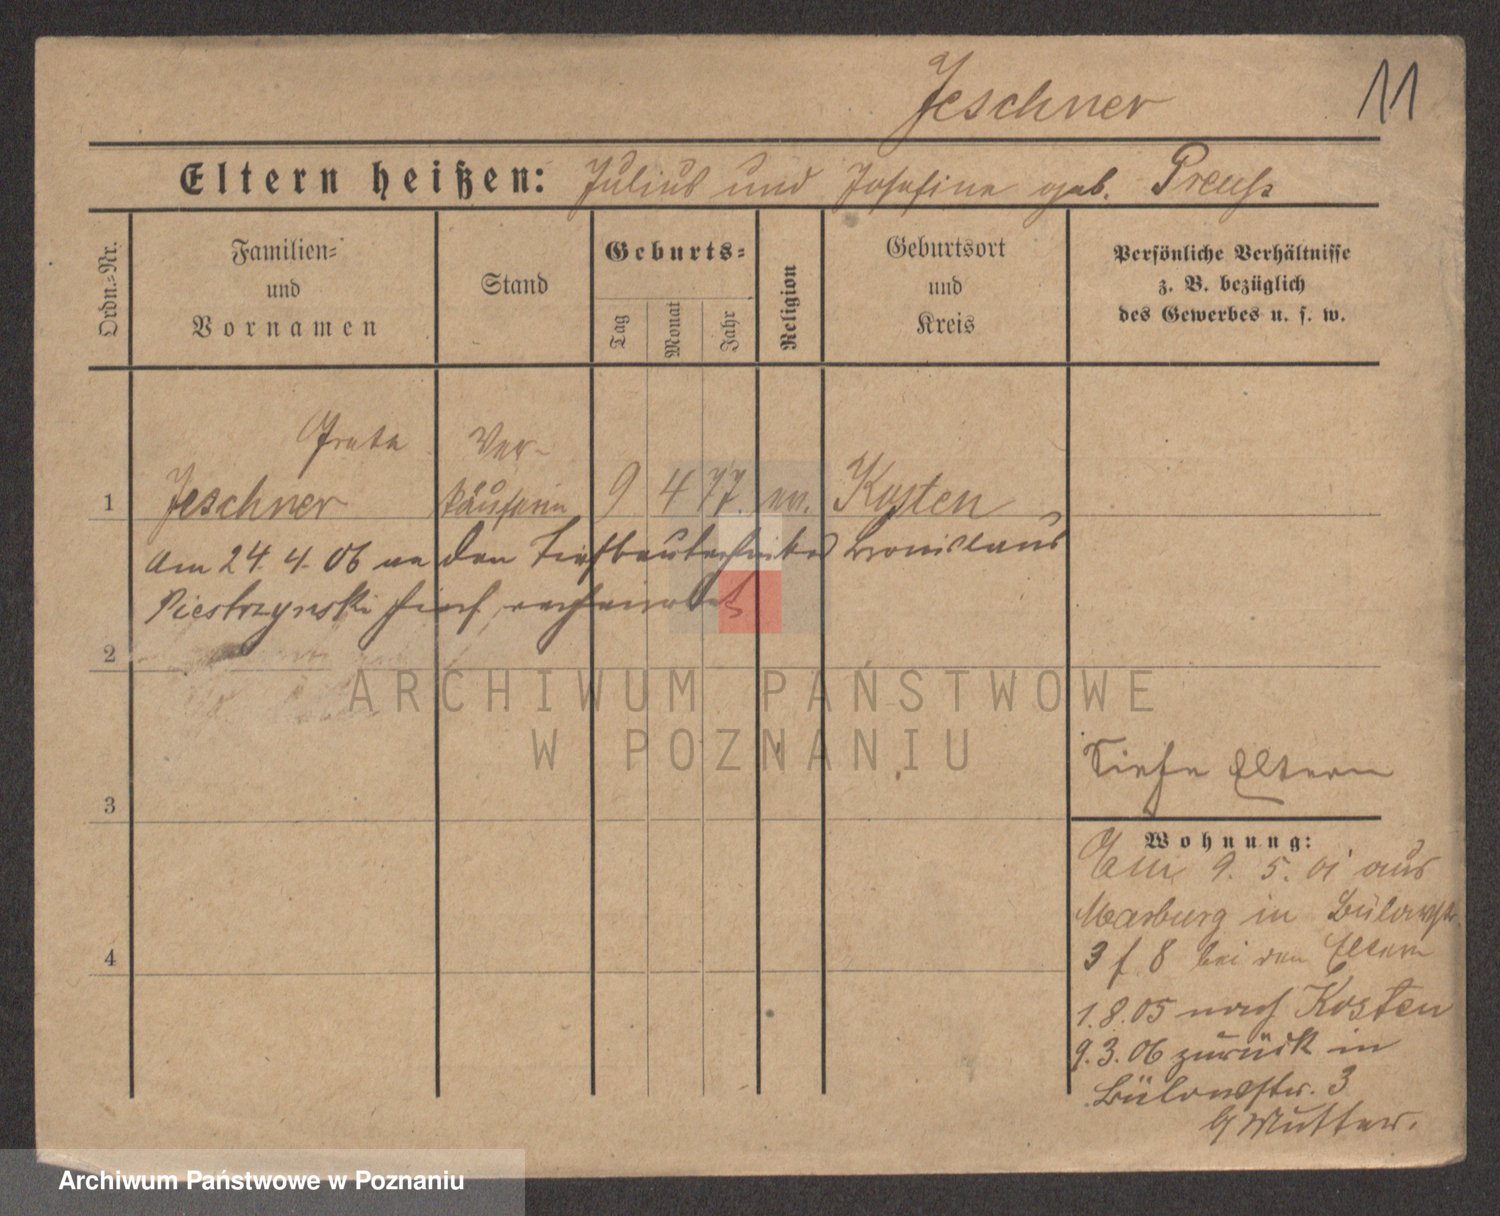 Jeschner
11
Eltern heißen: Julius und Josefine geb. Preuß
Ordn.-Nr.
Familien-
und
Vornamen
Stand
Geburts-
Tag
Monat
Jahr
Religion
Geburtsort
und
Kreis
Persönliche Verhältnisse
z. B. bezüglich
des Gewerbes u. s. w.
Greta Ver-
1 Jeschner käuferin 9 4 77. Kosten
Am 24. 4. 06 an den Tiefbautechniker Bronislaus
Piestrzynski hier verheiratet
2
ARCHIWUM PAŃSTWOWE
W POZNANIU
Siehe Eltern
3
Wohnung:
Am 9. 5. 01 aus
Marburg in Bülowstr.
3 f 8 bei den Eltern
4
1.8.05 nach Kosten
9.3.06 zurück in
Bülowstr. 3
Mutter.
Archiwum Państwowe w Poznaniu